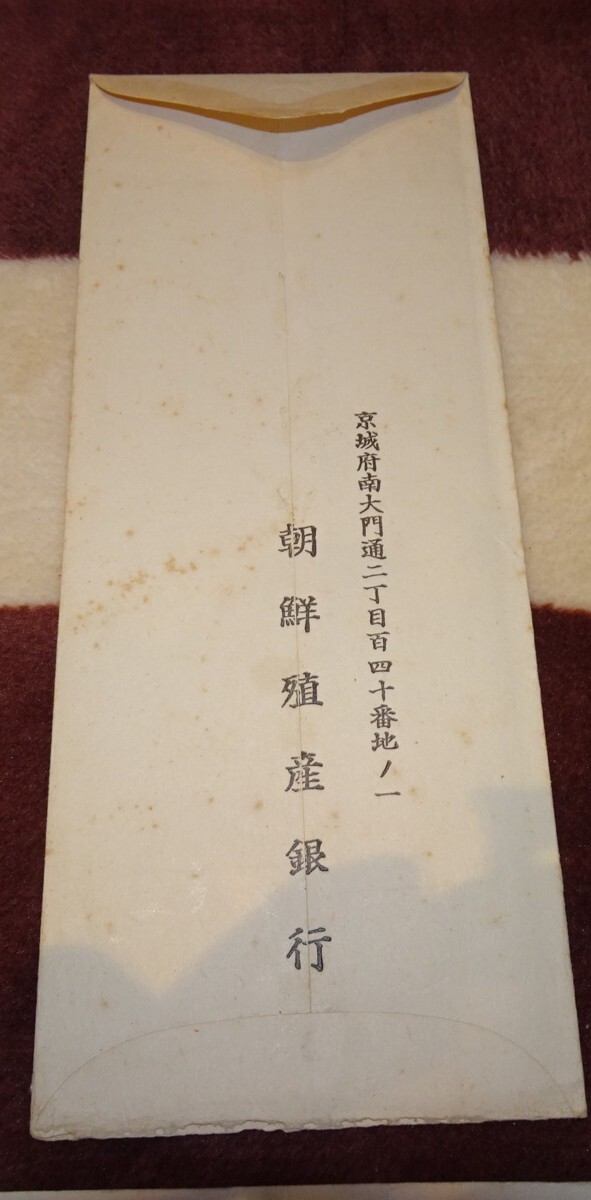 京城府南大門通二丁目百四十番地ノ一
朝鮮殖産銀行